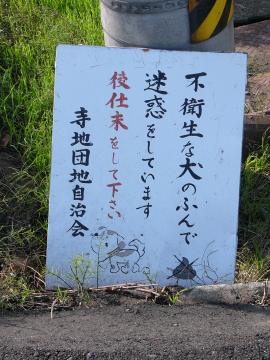 不衛生な犬のふんで
迷惑をしています
後仕末をして下さい
寺地団地自治会